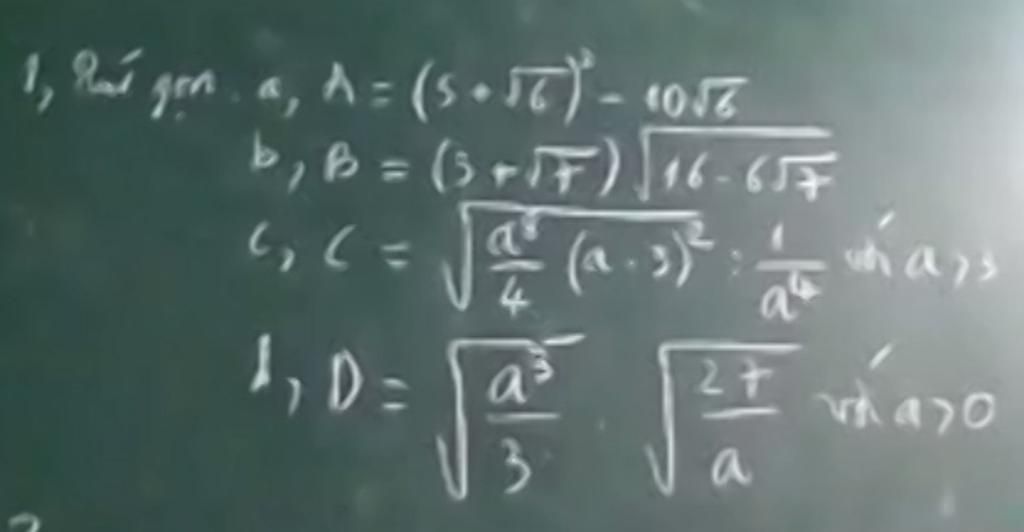 1, Rút gọn. a, A = (5 + √6)² - 10√6
b, B = (3 + √7) √(16 - 6√7)
c, C = √(a⁸/4 (a - 3)²) : 1/a⁴ với a > 3
d, D = √(a³/3) . √(27/a) với a > 0